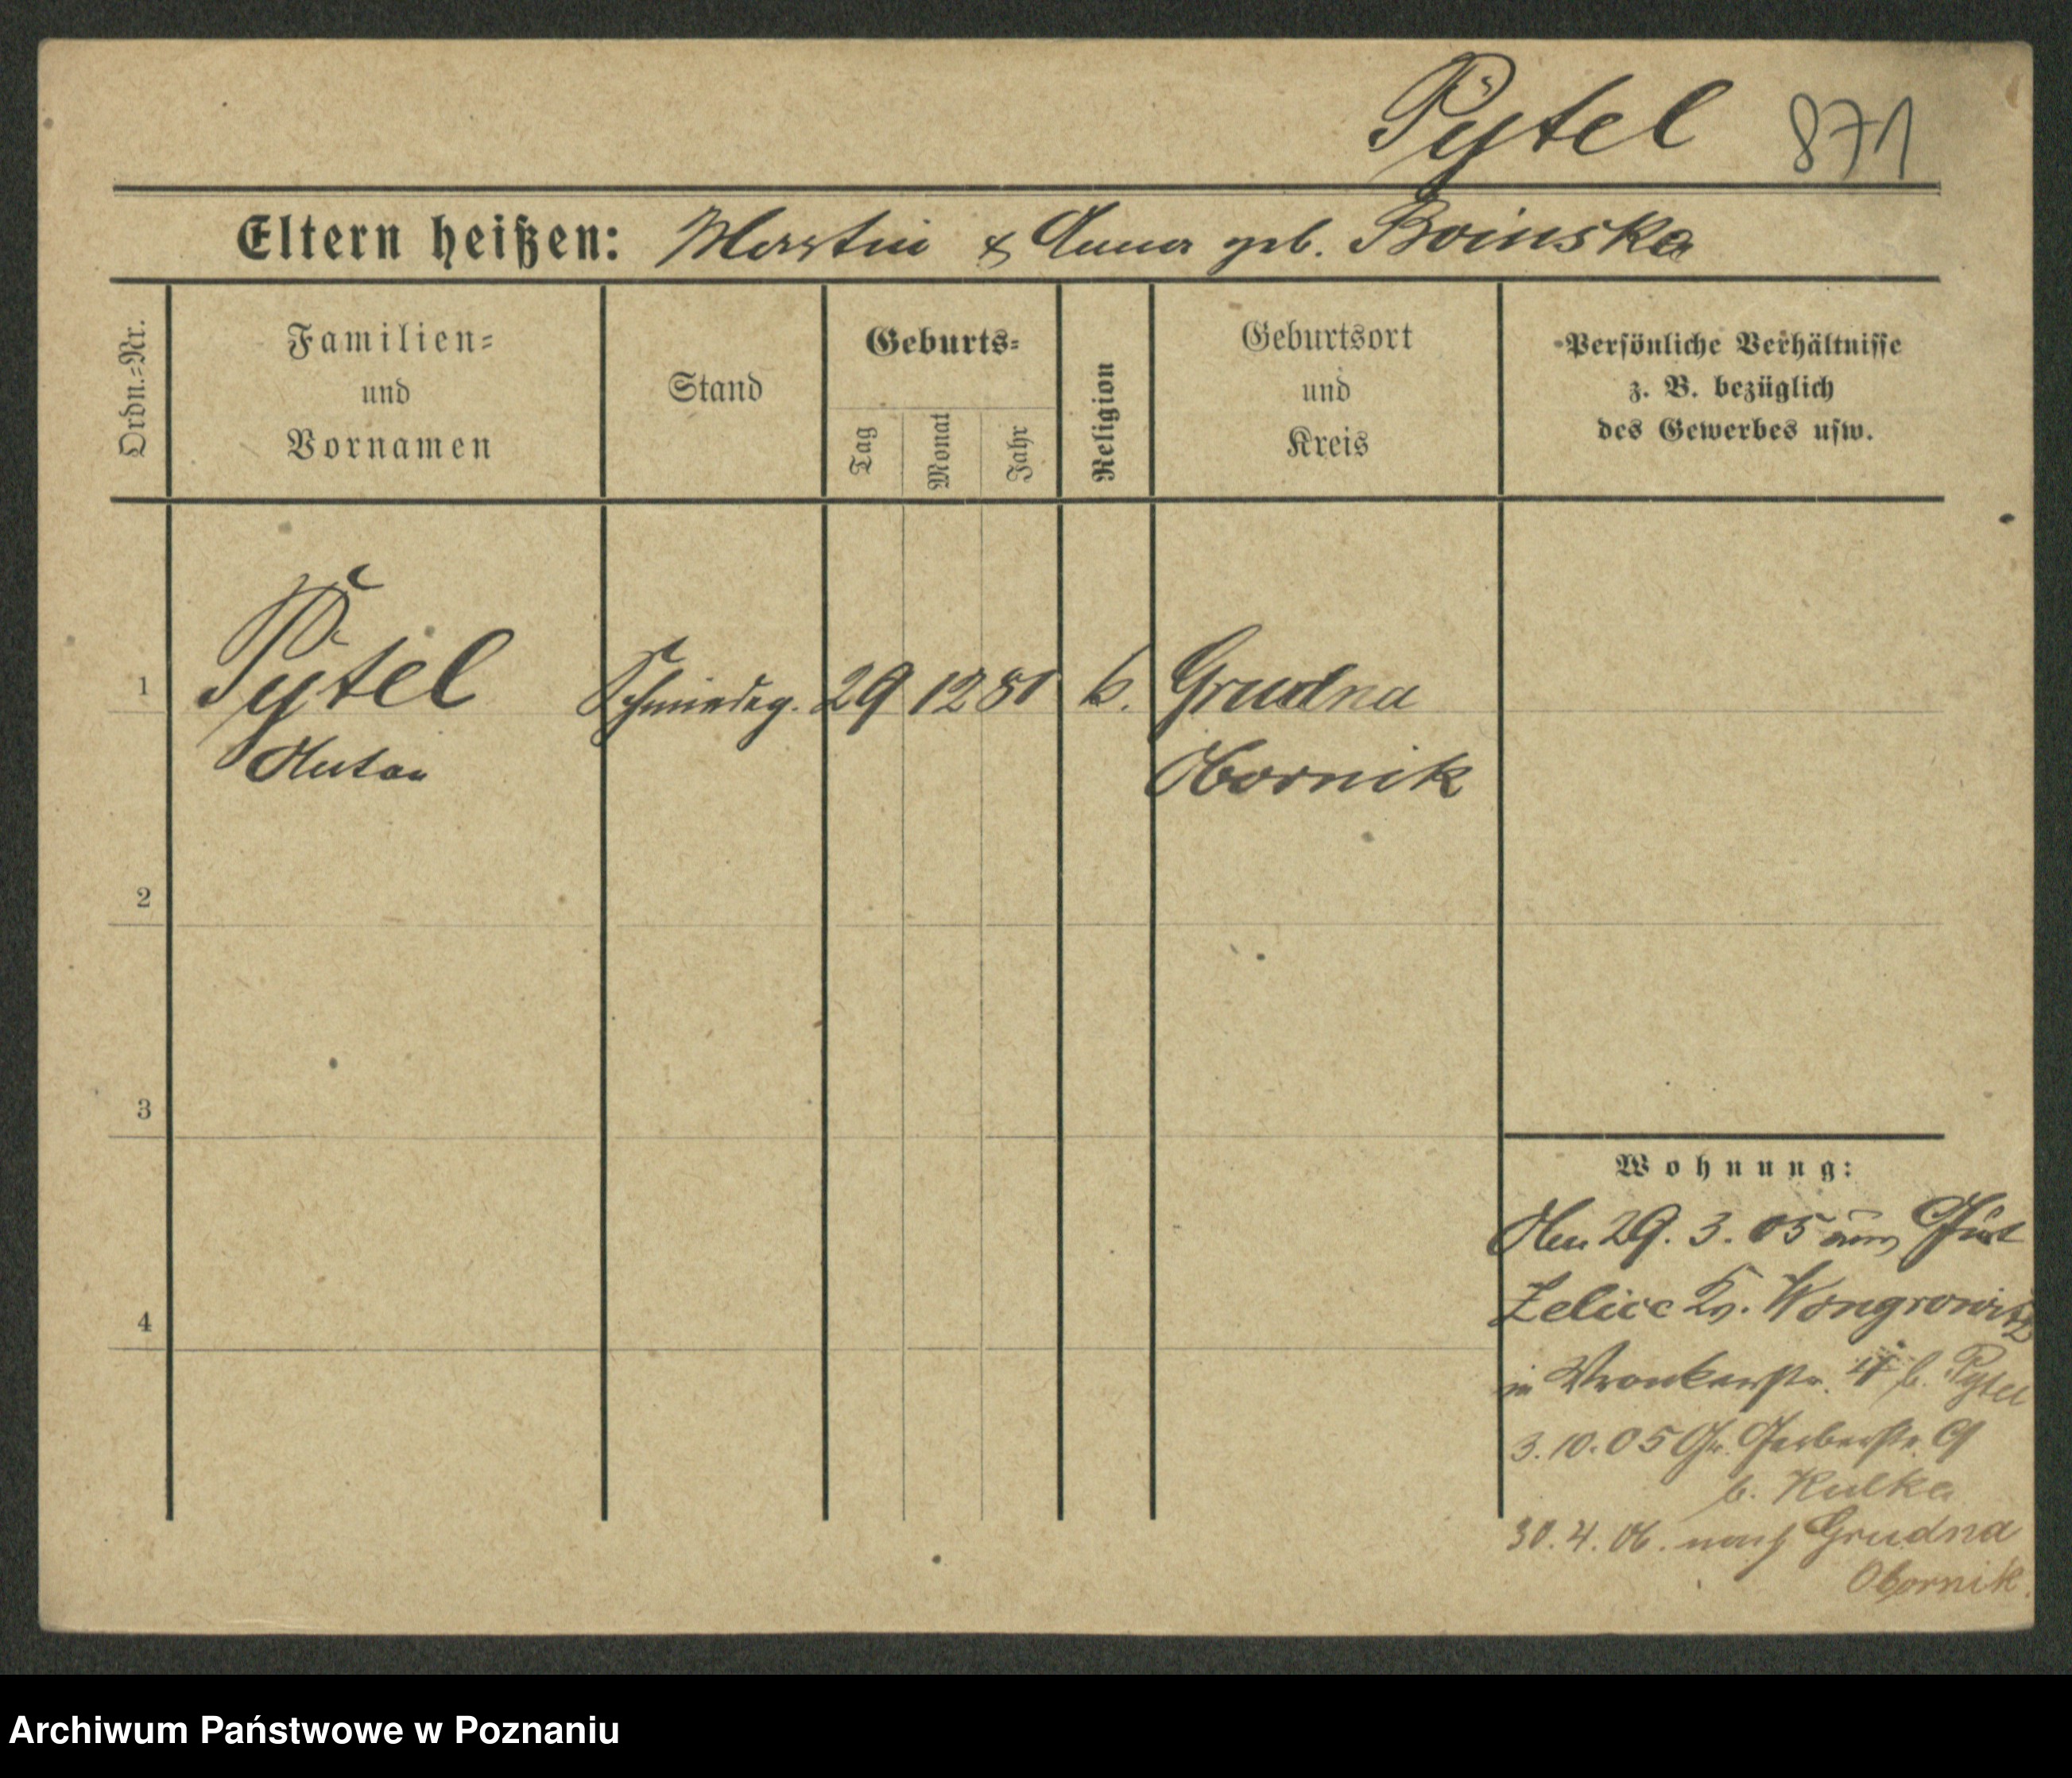 Pytel 871
Eltern heißen: Martin & Anna geb. Boinska
Ordn.-Nr.
Familien-
und
Vornamen
Stand
Geburts-
Tag
Monat
Jahr
Religion
Geburtsort
und
Kreis
Persönliche Verhältnisse
z. B. bezüglich
des Gewerbes usw.
1 Pytel Schmiedeg. 29 12 81 k. Grudna
Anton Obornik
2
3
4
Wohnung:
29. 3. 05 aus Gut
Zelice Kr. Wongrowitz
in Wronkerstr. 4 b. Pytel
3. 10. 05 Gr. Gerberstr. 9
b. Kulka
30. 4. 06. nach Grudna
Obornik.
Archiwum Państwowe w Poznaniu